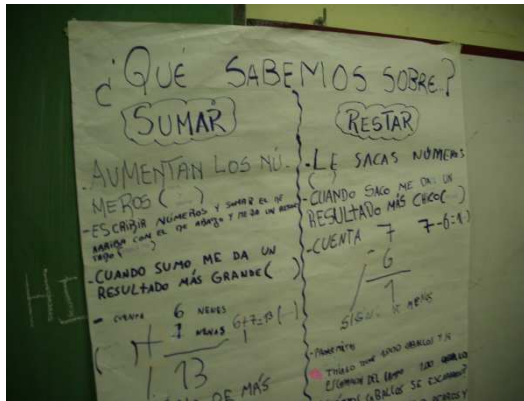 ¿QUÉ SABEMOS SOBRE..?
SUMAR
AUMENTAN LOS NÚ-
MEROS (...)
-ESCRIBIR NÚMEROS Y SUMAR EL DE
ARRIBA CON EL DE ABAJO Y ME DA UN RESUL
TADO (...)
-CUANDO SUMO ME DA UN
RESULTADO MÁS GRANDE( )
- CUENTA 6 NENES
+ 7 NENAS 6+7=13 (...)
13
DE MÁS
RESTAR
-LE SACAS NÚMEROS
(...)
-CUANDO SACO ME DA UN
RESULTADO MÁS CHICO(...)
-CUENTA 7 7-6=1
- 6
1
SIGNO DE MENOS
TENGO
CABALLOS
DEL CAMPO 100
CABALLOS SE ESCAPARON?
HI